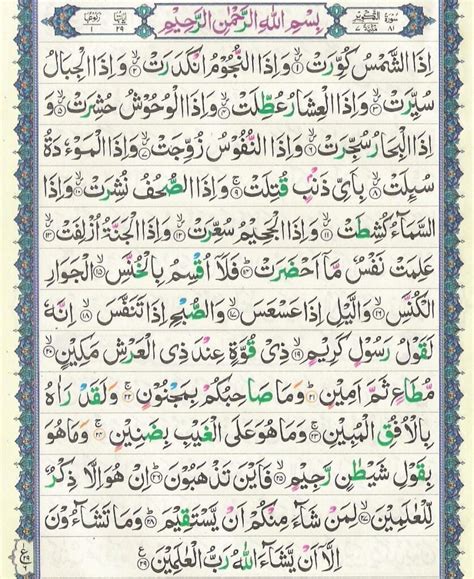 سُوْرَةُ التَّكْوِيْرِ مَكِّيَّةٌ ٨١ ٧
بِسْمِ اللهِ الرَّحْمٰنِ الرَّحِيْمِ
٢٩ ١
اِذَا الشَّمْسُ كُوِّرَتْ ۙ‏﴿۱﴾ وَاِذَا النُّجُوْمُ انْكَدَرَتْ ۙ‏﴿۲﴾ وَاِذَا الْجِبَالُ
سُيِّرَتْ ۙ‏﴿۳﴾ وَاِذَا الْعِشَارُ عُطِّلَتْ ۙ‏﴿۴﴾ وَاِذَا الْوُحُوْشُ حُشِرَتْ ۙ‏﴿۵﴾
وَاِذَا الْبِحَارُ سُجِّرَتْ ۙ‏﴿۶﴾ وَاِذَا النُّفُوْسُ زُوِّجَتْ ۙ‏﴿۷﴾ وَاِذَا الْمَوْءٗدَةُ
سُىِٕلَتْ ۙ‏﴿۸﴾ بِاَىِّ ذَنْۢبٍ قُتِلَتْ ۚ‏﴿۹﴾ وَاِذَا الصُّحُفُ نُشِرَتْ ۙ‏﴿۱۰﴾ وَاِذَا
السَّمَآءُ كُشِطَتْ ۙ‏﴿۱۱﴾ وَاِذَا الْجَحِيْمُ سُعِّرَتْ ۙ‏﴿۱۲﴾ وَاِذَا الْجَنَّةُ اُزْلِفَتْ ۙ‏﴿۱۳﴾
عَلِمَتْ نَفْسٌ مَّاۤ اَحْضَرَتْ ؕ‏﴿۱۴﴾ فَلَاۤ اُقْسِمُ بِالْخُنَّسِ ۙ‏﴿۱۵﴾ الْجَوَارِ
الْكُنَّسِ ۙ‏﴿۱۶﴾ وَالَّيْلِ اِذَا عَسْعَسَ ۙ‏﴿۱۷﴾ وَالصُّبْحِ اِذَا تَنَفَّسَ ۙ‏﴿۱۸﴾ اِنَّهٗ
لَقَوْلُ رَسُوْلٍ كَرِيْمٍ ۙ‏﴿۱۹﴾ ذِىْ قُوَّةٍ عِنْدَ ذِى الْعَرْشِ مَكِيْنٍ ۙ‏﴿۲۰﴾
مُّطَاعٍ ثَمَّ اَمِيْنٍ ؕ‏﴿۲۱﴾ وَمَا صَاحِبُكُمْ بِمَجْنُوْنٍ ۚ‏﴿۲۲﴾ وَلَقَدْ رَاٰهُ
بِالْاُفُقِ الْمُبِيْنِ ۚ‏﴿۲۳﴾ وَمَا هُوَ عَلَى الْغَيْبِ بِضَنِيْنٍ ۚ‏﴿۲۴﴾ وَمَا هُوَ
بِقَوْلِ شَيْطٰنٍ رَّجِيْمٍ ۙ‏﴿۲۵﴾ فَاَيْنَ تَذْهَبُوْنَ ؕ‏﴿۲۶﴾ اِنْ هُوَ اِلَّا ذِكْرٌ
لِّلْعٰلَمِيْنَ ۙ‏﴿۲۷﴾ لِمَنْ شَآءَ مِنْكُمْ اَنْ يَّسْتَقِيْمَ ؕ‏﴿۲۸﴾ وَمَا تَشَآءُوْنَ
اِلَّاۤ اَنْ يَّشَآءَ اللهُ رَبُّ الْعٰلَمِيْنَ‏﴿۲۹﴾